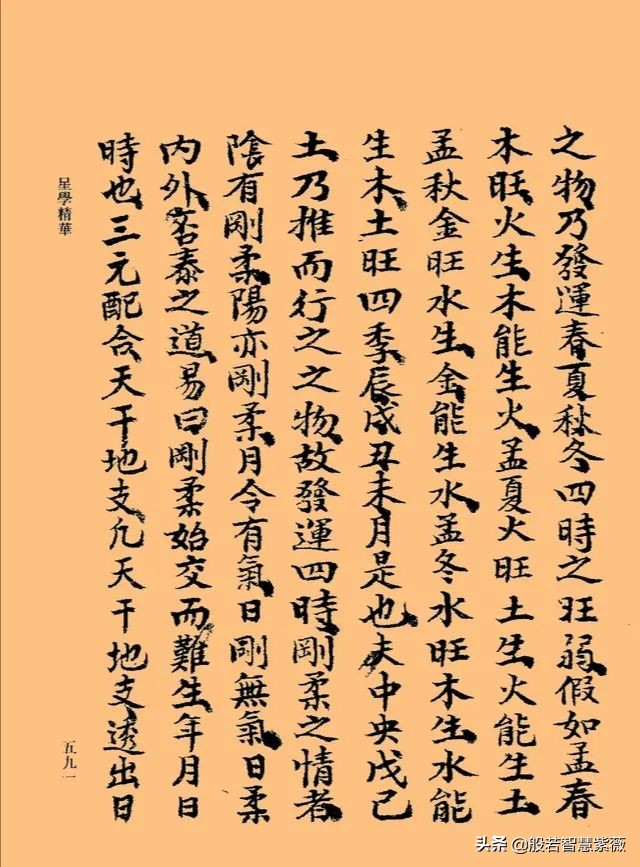 之物乃發運春夏秋冬四時之旺弱假如孟春
木旺火生木能生火孟夏火旺土生火能生土
孟秋金旺水生金能生水孟冬水旺木生水能
生木土旺四季辰戌丑未月是也夫中央戊己
土乃推而行之之物故發運四時剛柔之情者
陰有剛柔陽亦剛柔月令有氣日剛無氣日柔
內外否泰之道易曰剛柔始交而難生年月日
時也三元配合天干地支凡天干地支透出日
星學精華
五九一
头条@般若智慧紫薇